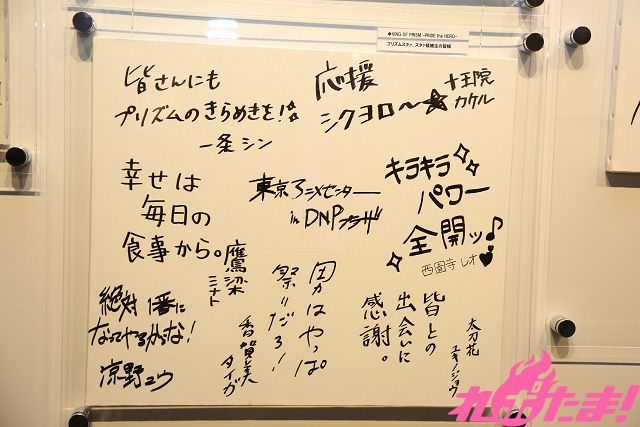 ◆KING OF PRISM -PRIDE the HERO-
プリズムスタァ、スタァ候補生の皆様
皆さんにも
プリズムのきらめきを!
一条シン
応援
シクヨロ〜★
十王院
カケル
幸せは
毎日の
食事から。
鷹梁
ミナト
東京アニメセンター
in DNPプラザ
キラキラ
パワー
全開ッ♪
西園寺レオ
絶対1番に
なってやるからな!
涼野ユウ
男はやっぱ
祭りだろ!
香賀美
タイガ
皆との
出会いに
感謝。
太刀花
ユキノジョウ
れポたま!